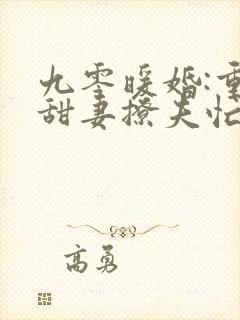 九零暖婚:重
甜妻撩夫忙
高勇